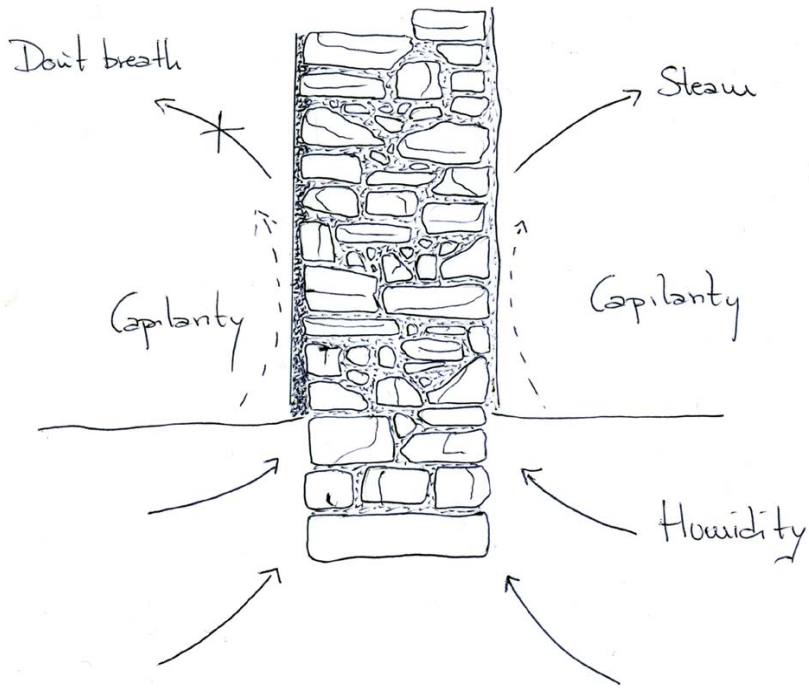 Don't breath
Steam
Capilarity
Capilarity
Humidity